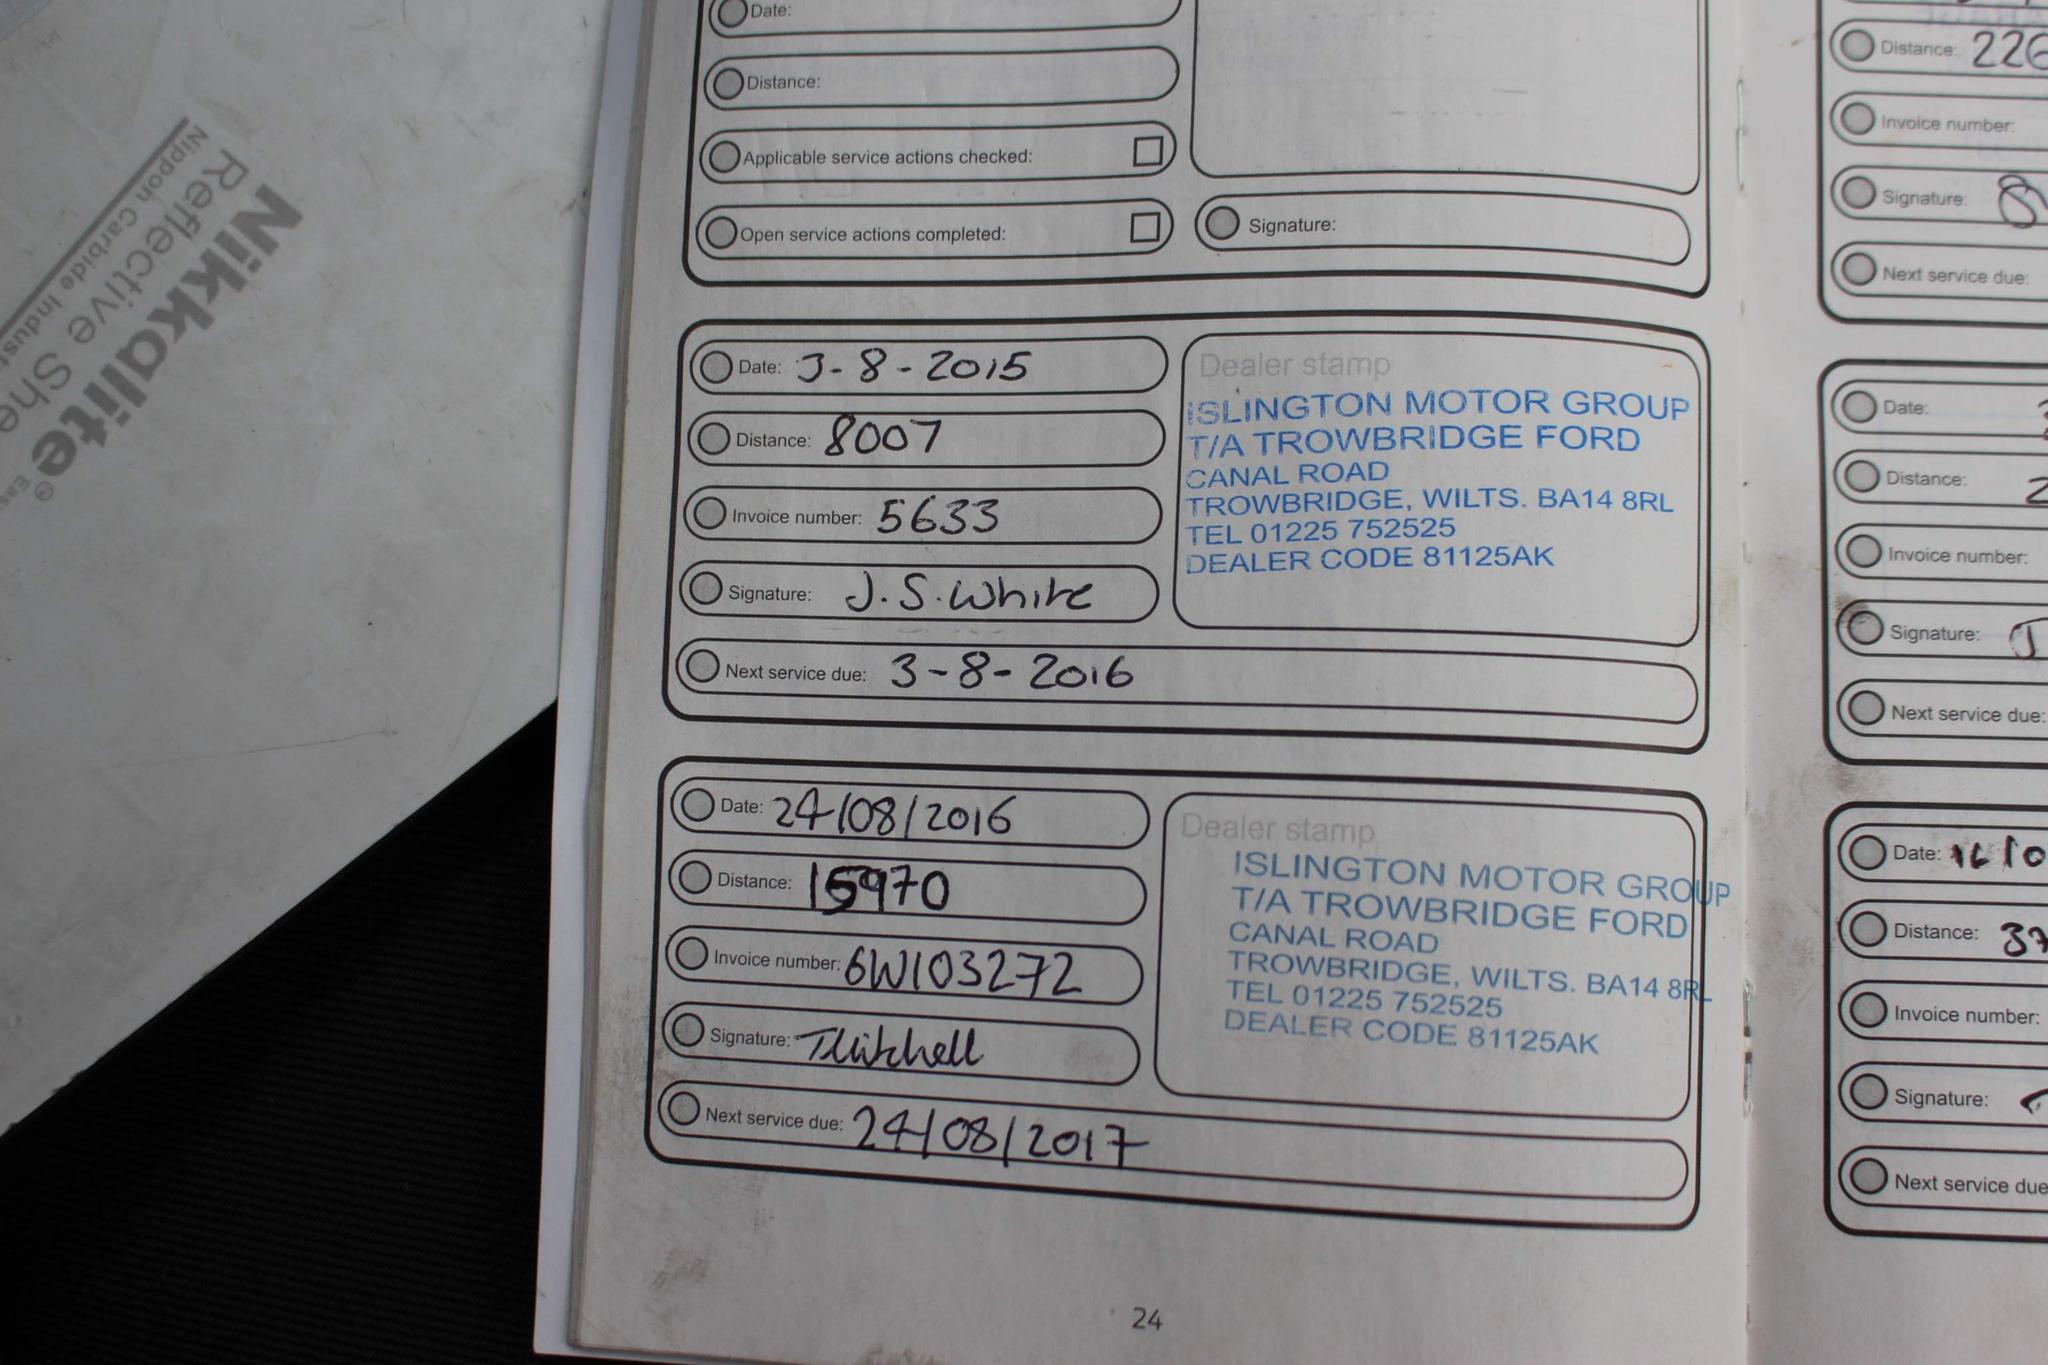 Nikkalite®
Reflective She
Nippon Carbide Indust
Date:
Distance:
Applicable service actions checked:
Open service actions completed:
Signature:
Date: 3-8-2015
Distance: 8007
Invoice number: 5633
Signature: J.S.White
Next service due: 3-8-2016
Dealer stamp
ISLINGTON MOTOR GROUP
T/A TROWBRIDGE FORD
CANAL ROAD
TROWBRIDGE, WILTS. BA14 8RL
TEL 01225 752525
DEALER CODE 81125AK
Date: 24/08/2016
Distance: 15970
Invoice number: 6W103272
Signature: TMitchell
Next service due: 24/08/2017
Dealer stamp
ISLINGTON MOTOR GROUP
T/A TROWBRIDGE FORD
CANAL ROAD
TROWBRIDGE, WILTS. BA14 8RL
TEL 01225 752525
DEALER CODE 81125AK
24
Distance: 226
Invoice number:
Signature:
Next service due:
Date:
Distance: 2
Invoice number:
Signature: J
Next service due:
Date:
Distance: 37
Invoice number:
Signature:
Next service due